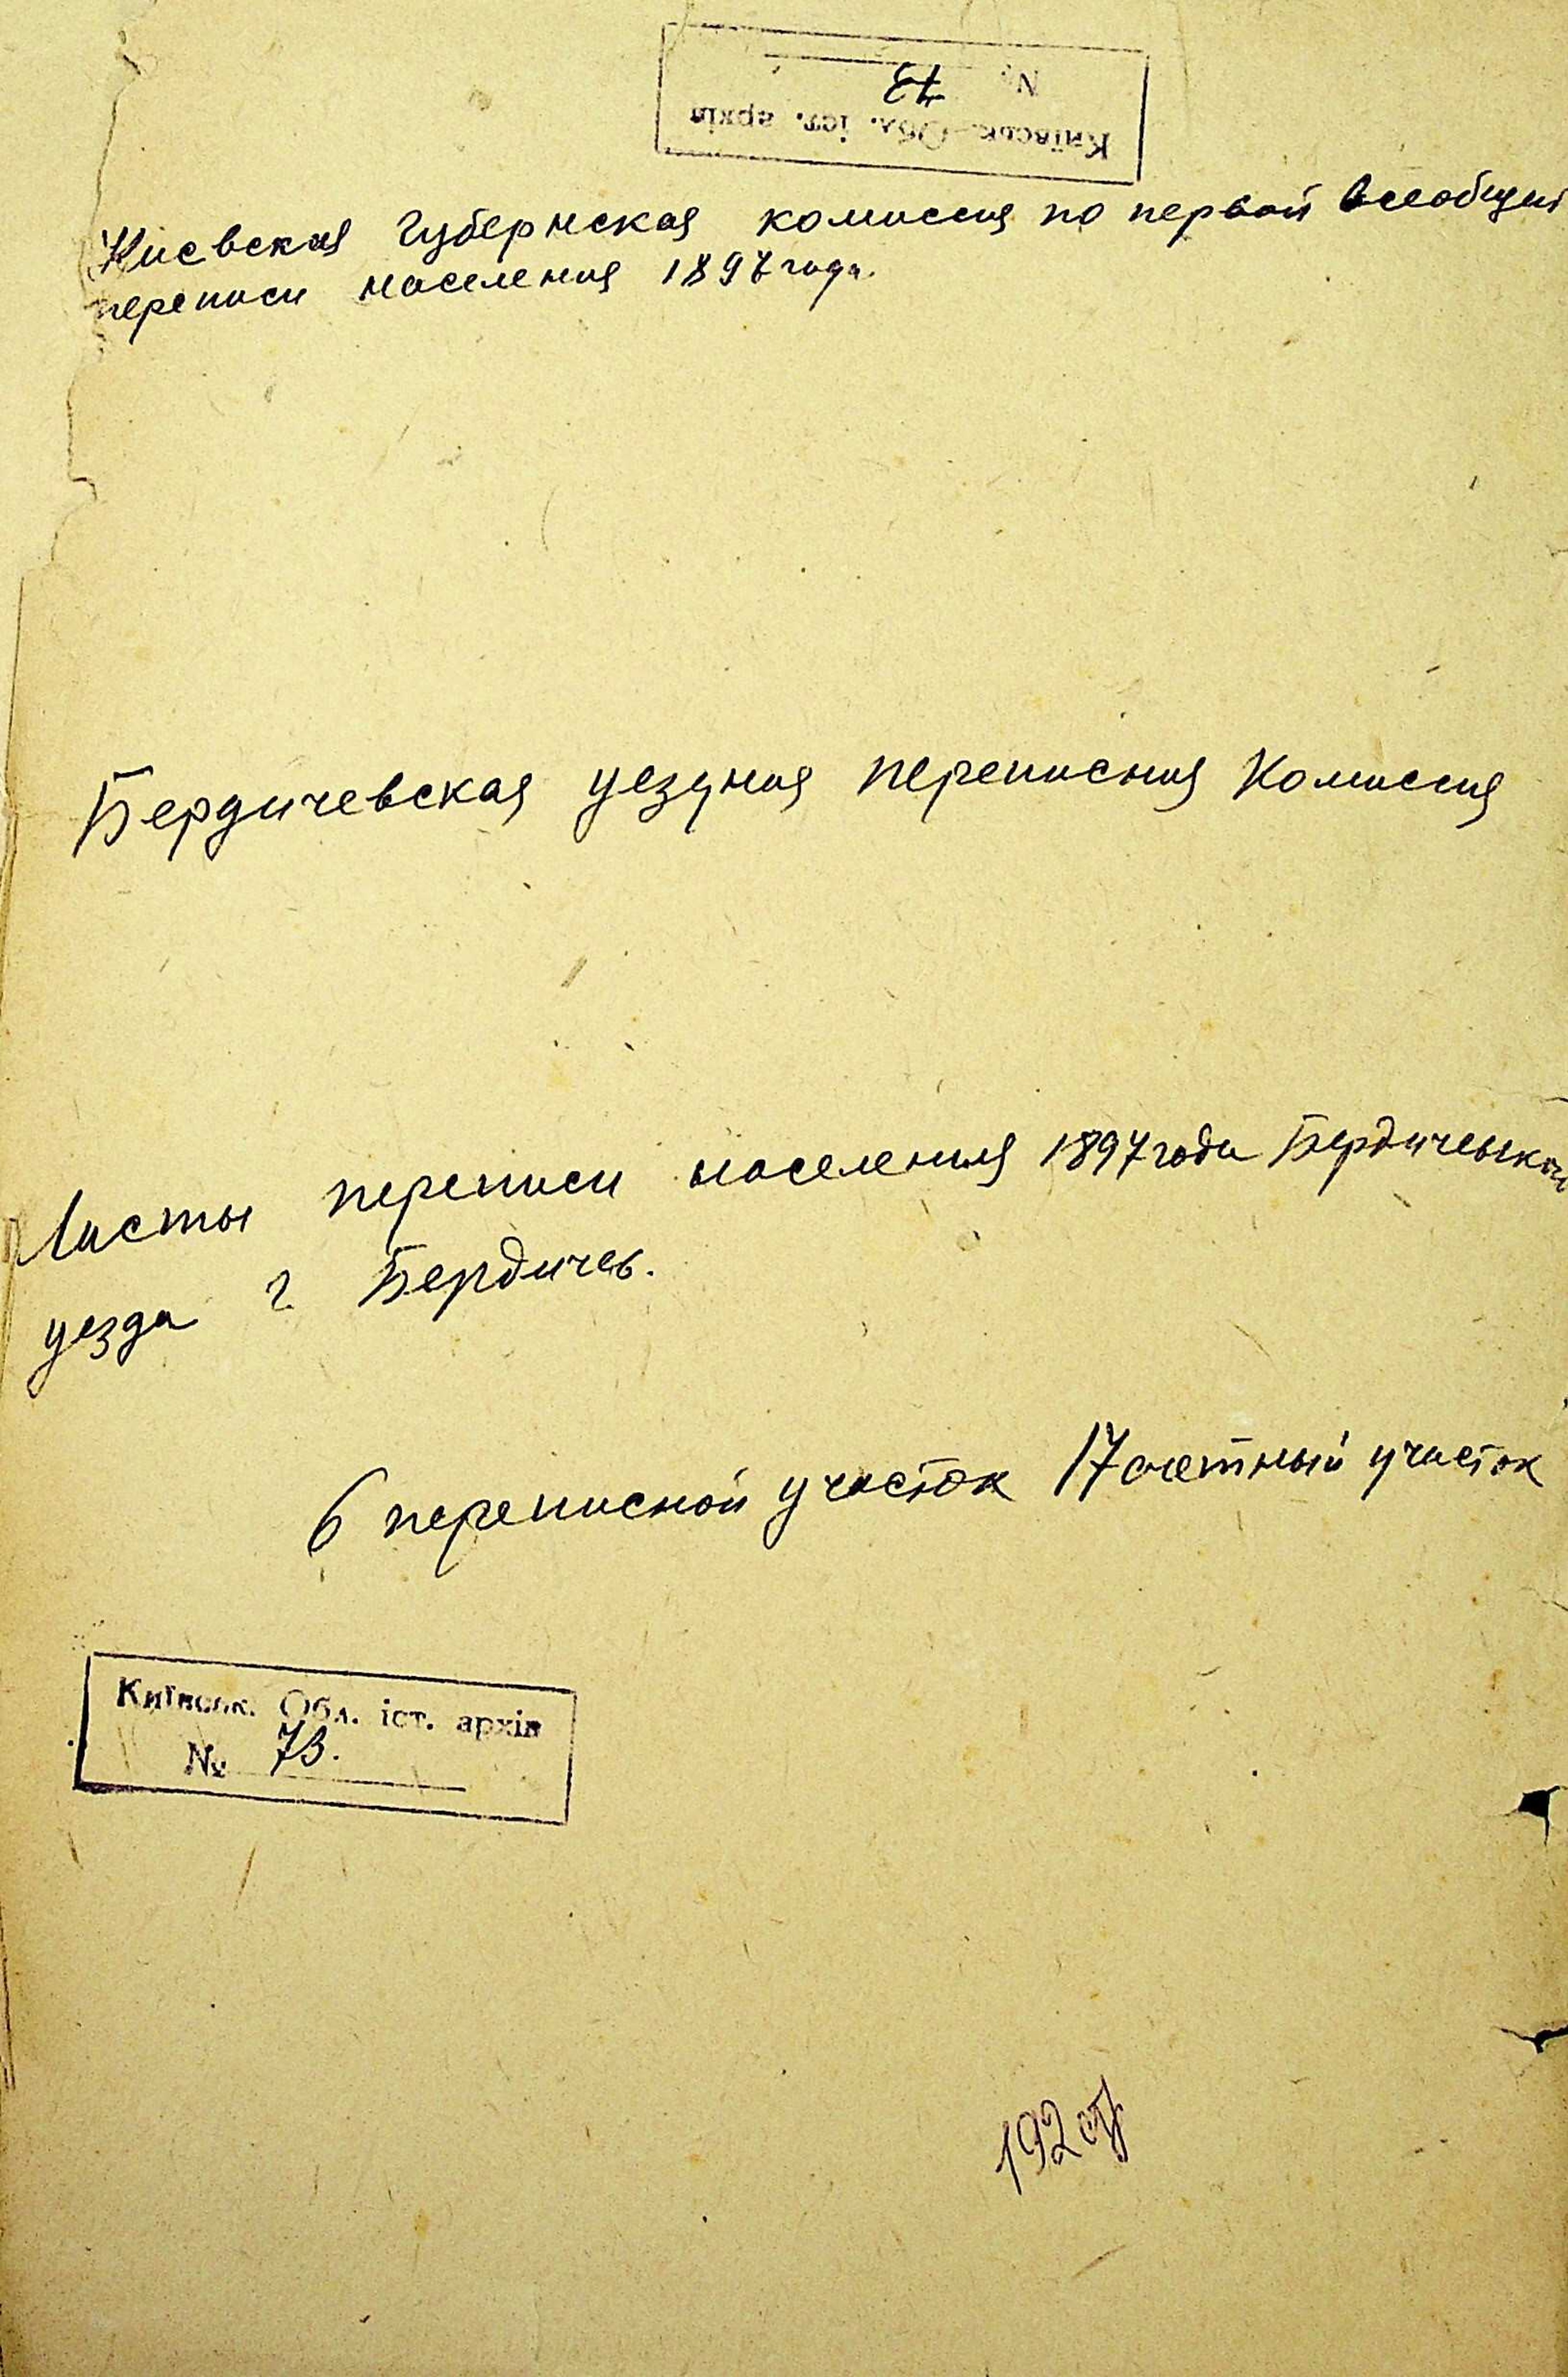 Київськ. Обл. іст. архів
№ 73
Киевская Губернская комиссия по первой Всеобщей
переписи населения 1897 года.
Бердичевская уездная переписная Комиссия
Листы переписи населения 1897 года Бердичевского
уезда г. Бердичев.
6 переписной участок 17 счетный участок
Київськ. Обл. іст. архів
№ 73.
192 стр